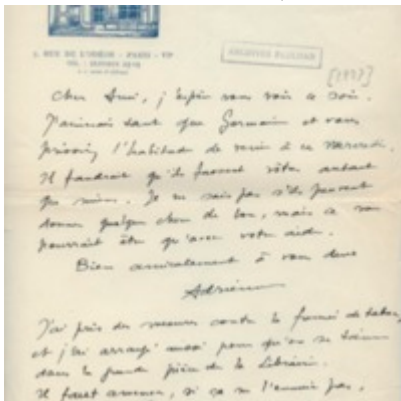 7, RUE DE L'ODÉON - PARIS - VIᵉ
ARCHIVES PAULHAN
[1937]
Cher Ami, j'espère vous voir ce soir.
J'aimerais tant que Germaine et vous
preniez l'habitude de venir à ces Mercredis.
Il faudrait qu'ils fussent vôtres autant
que miens. Je ne sais pas s'ils peuvent
donner quelque chose de bon, mais ce ne
pourrait être qu'avec votre aide.
Bien amicalement à vous deux
Adrienne
J'ai pris des mesures contre la fumée de tabac,
et j'ai arrangé aussi pour qu'on se tienne
dans la grande pièce de la Librairie.
Il faut amener, si ça ne l'ennuie pas,